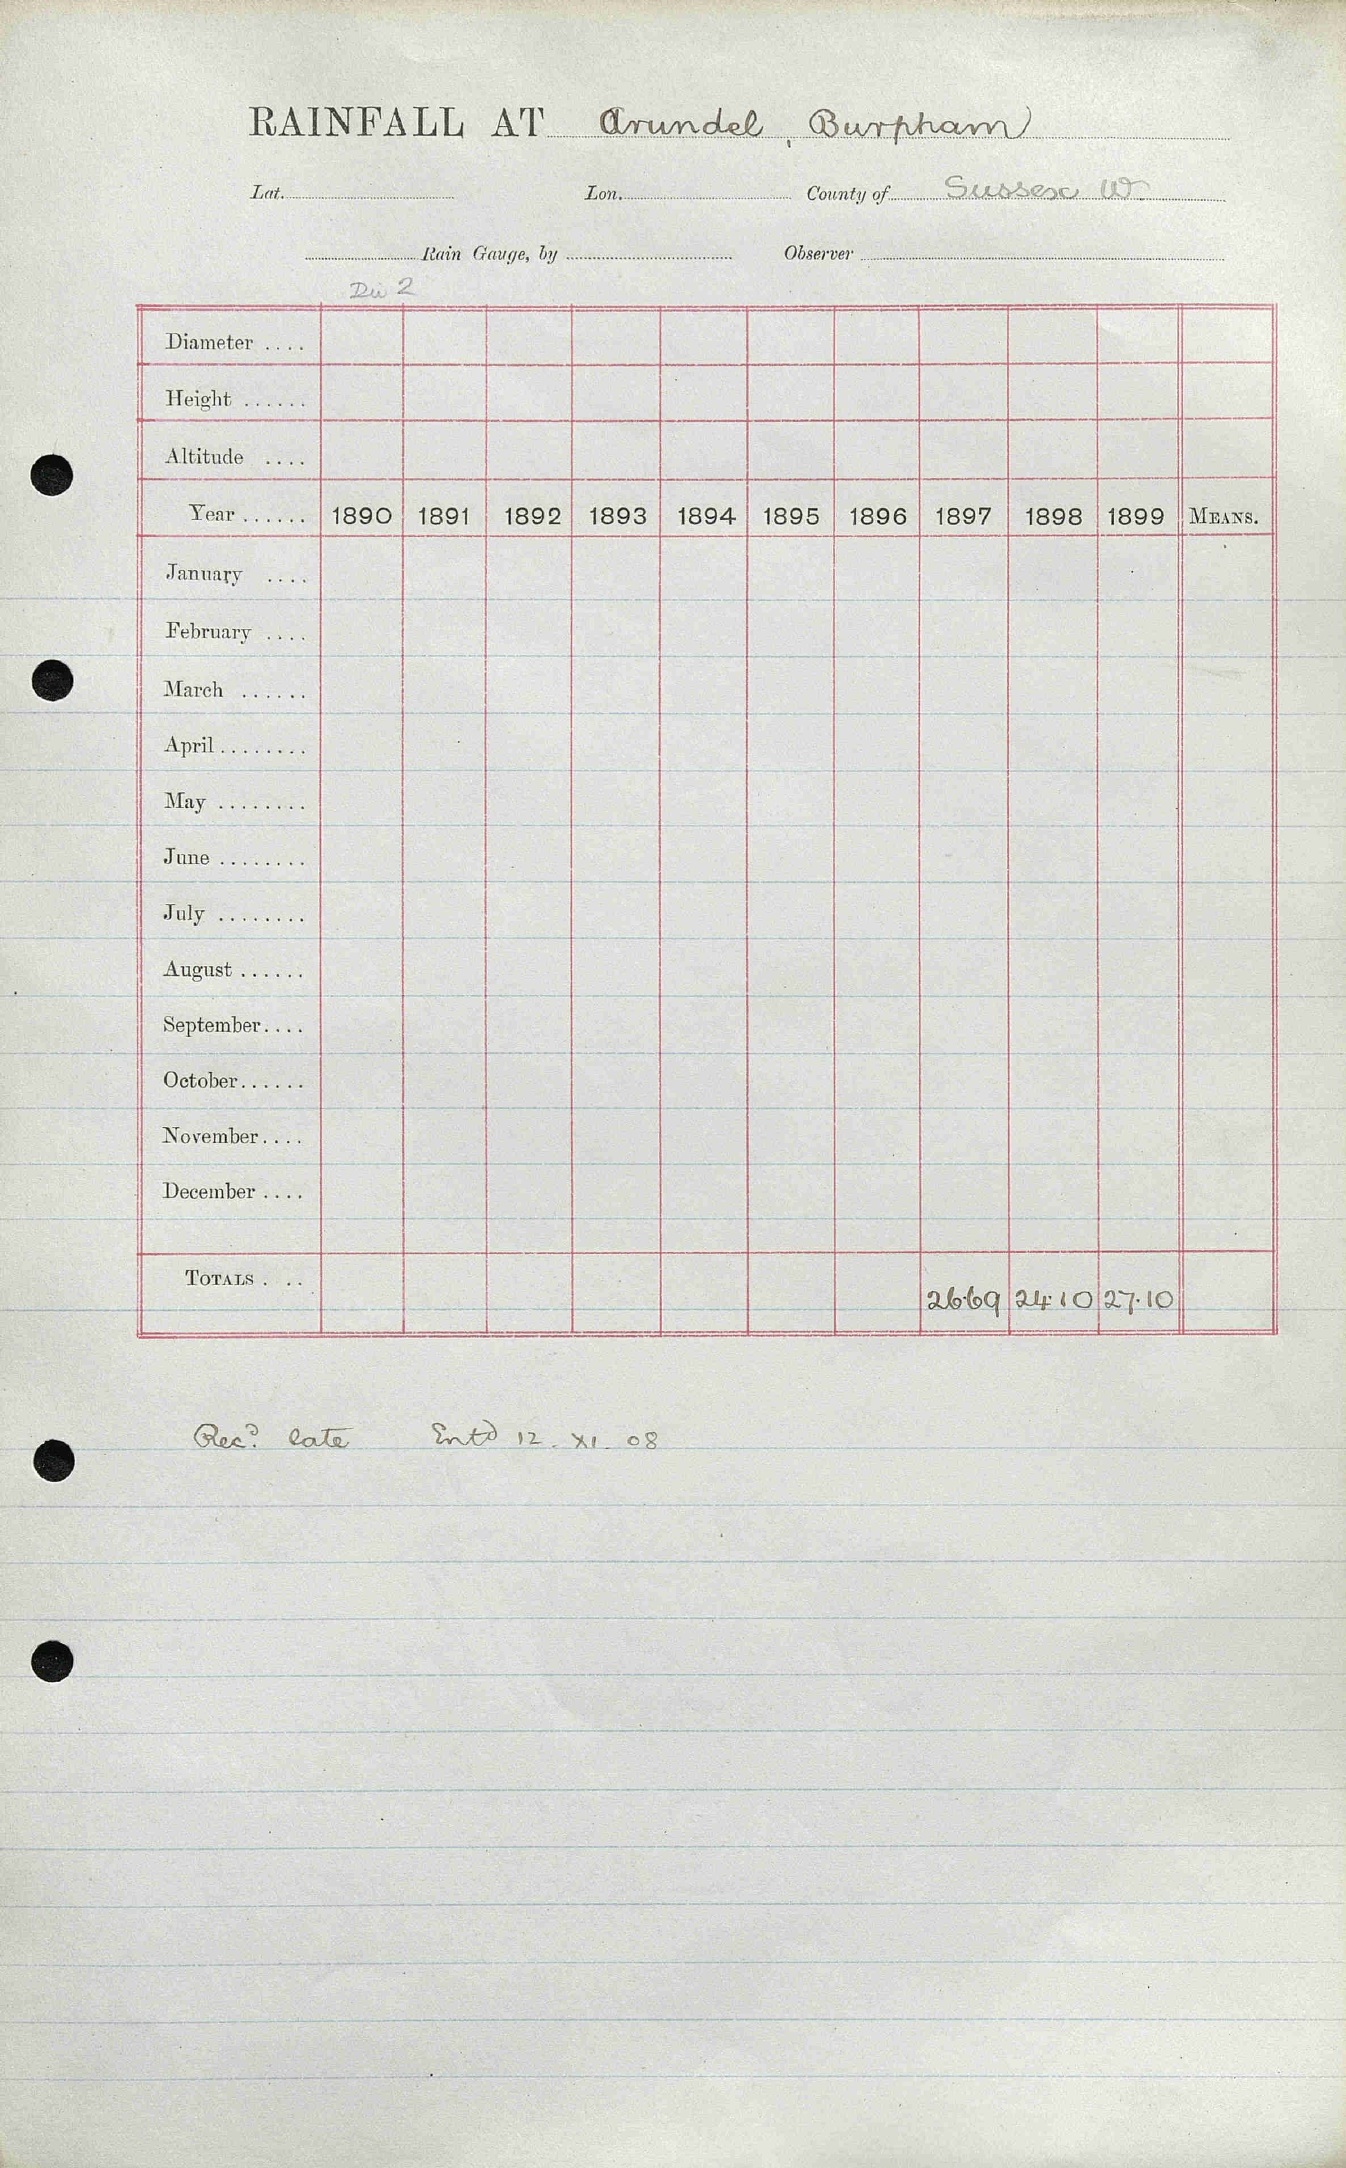 RAINFALL AT Arundel, Burpham
Lat. Lon. County of Sussex W.
Rain Gauge, by Observer
Div 2
Diameter ....
Height ......
Altitude ....
Year ...... 1890 1891 1892 1893 1894 1895 1896 1897 1898 1899 MEANS.
January ....
February ....
March ......
April ........
May ........
June ........
July ........
August ......
September ....
October ......
November ....
December ....
TOTALS . .. 26.69 24.10 27.10
Recd. late Entd 12. XI. 08